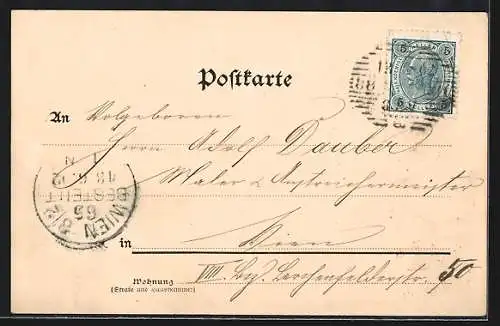 Postkarte
An Wolgeboren
Herrn Adolf Dauber
Maler u Anstreichermeister
in Wien
Wohnung
(Straße und Hausnummer)
VIII. Bez. Lerchenfelderstr. 50
5 5
WIEN 8/2
65
BESTELLT